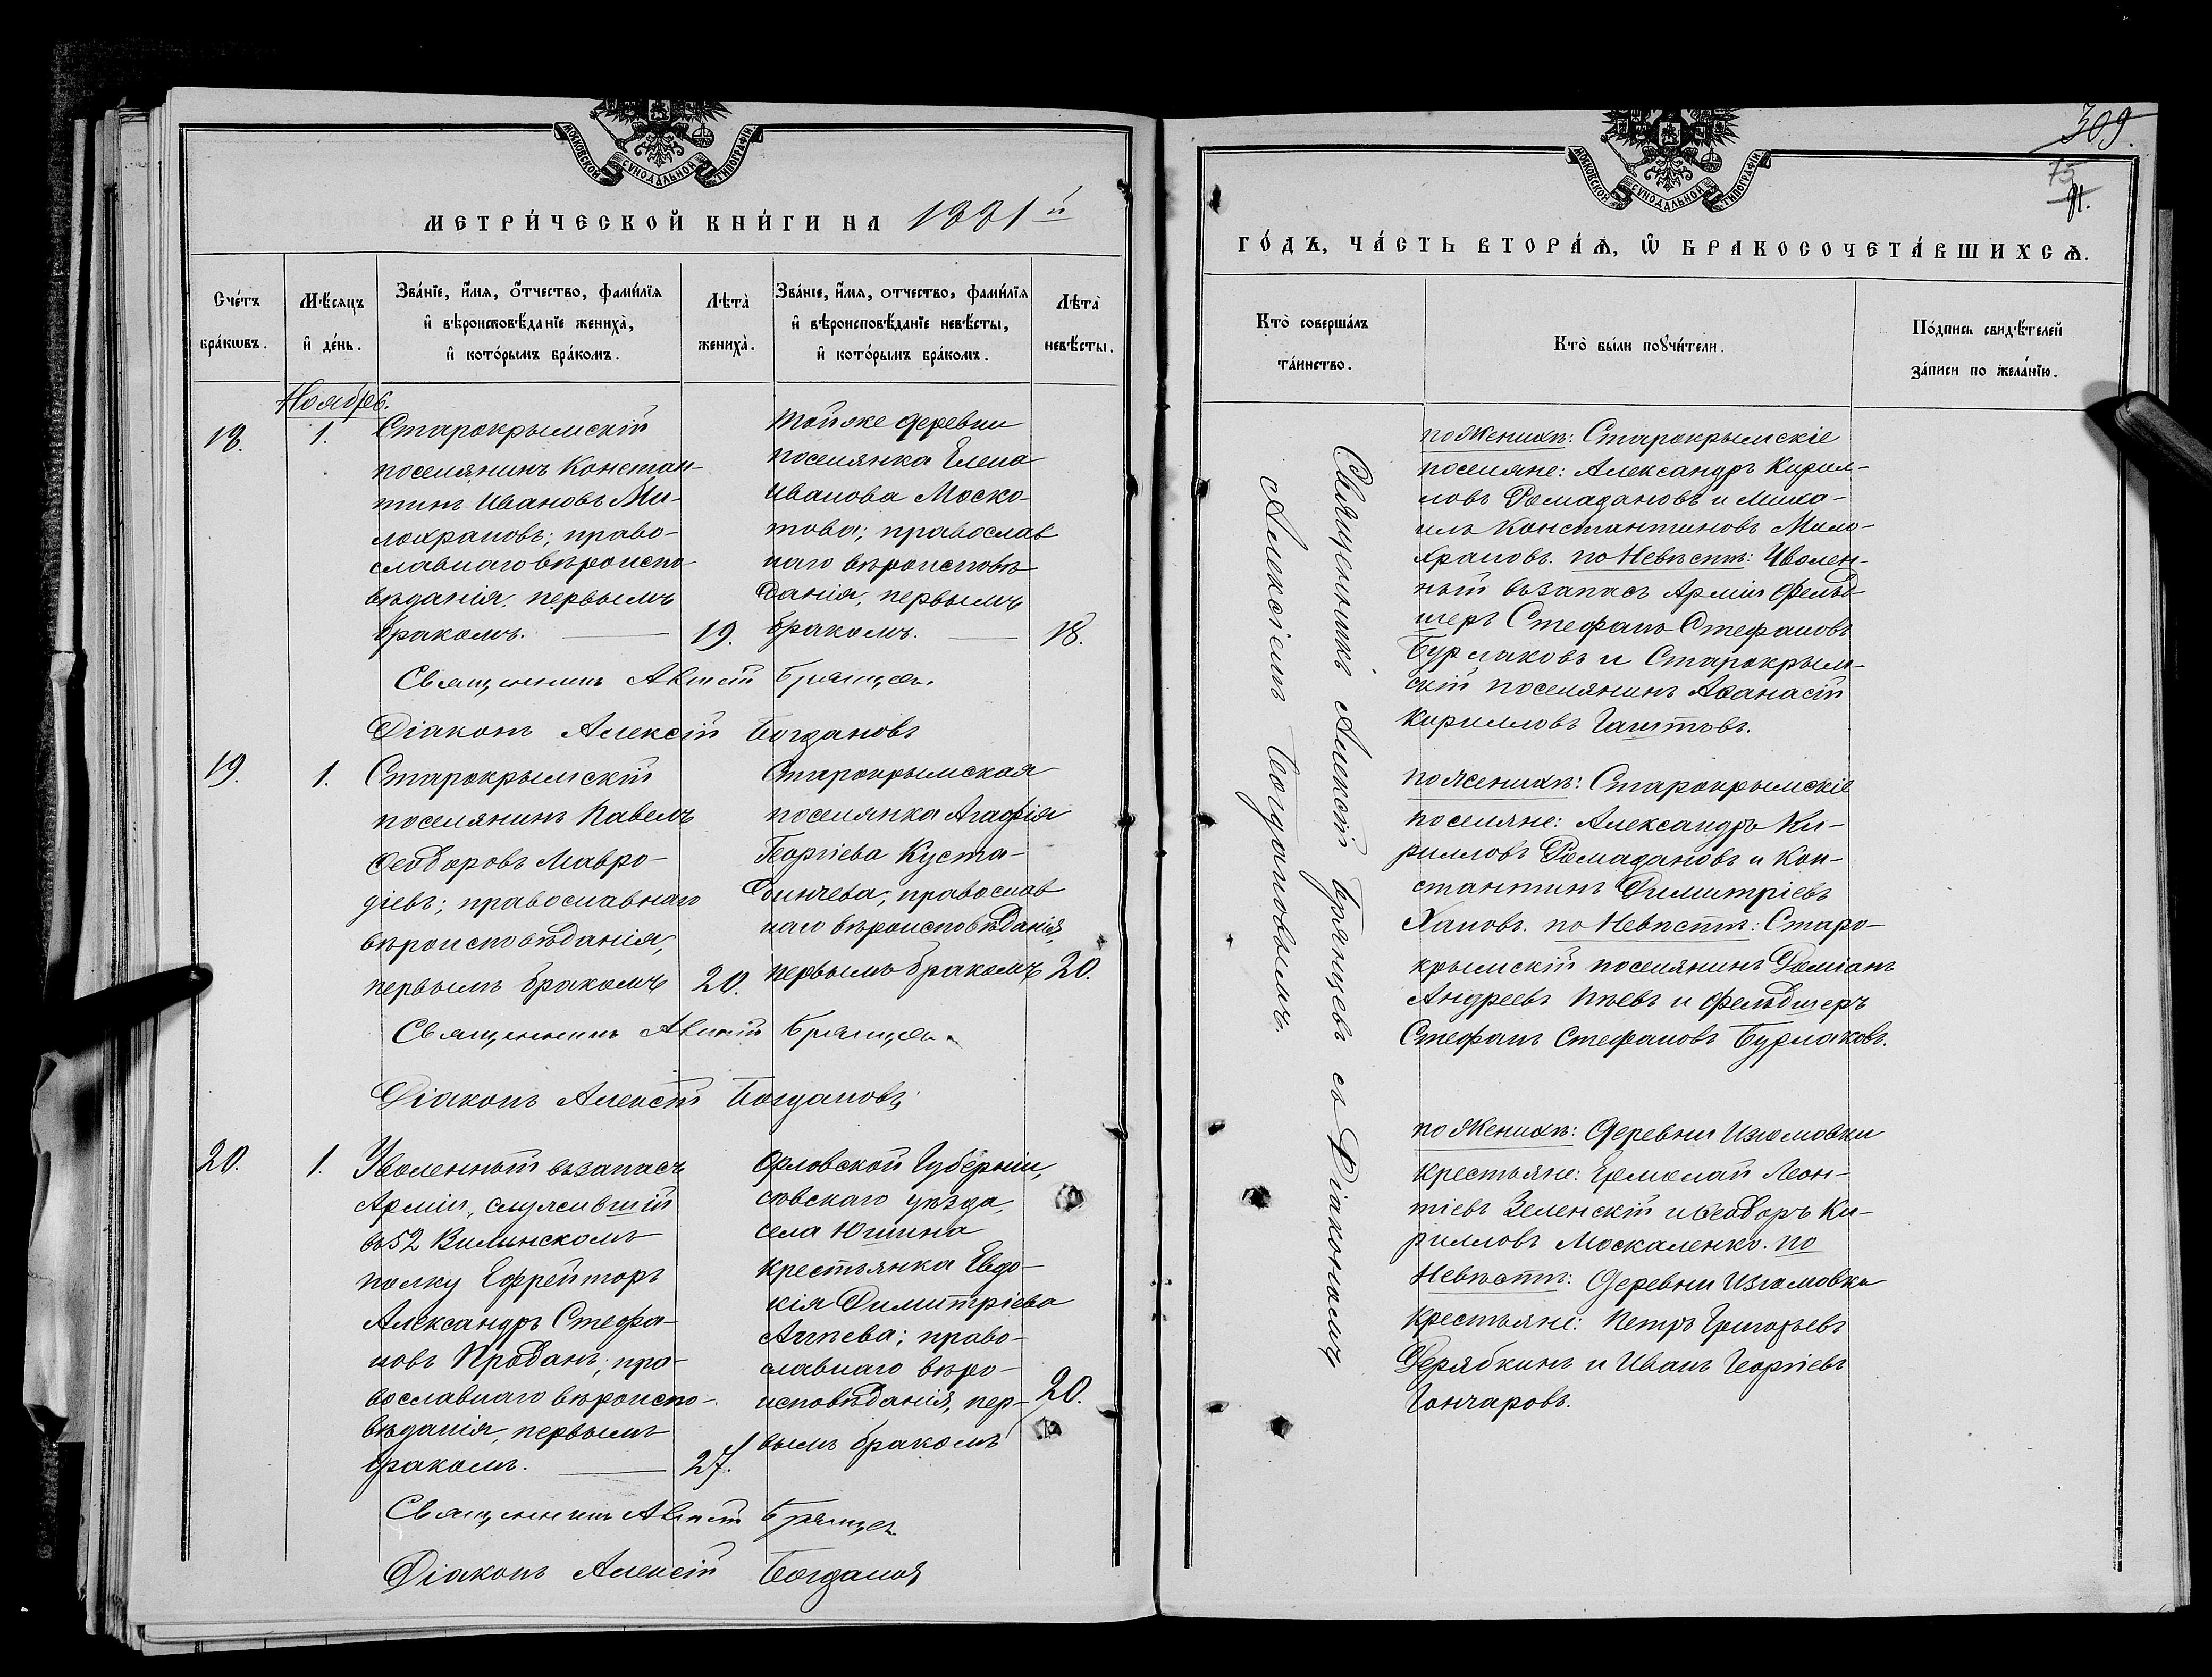 МОСКОВСКОЙ СѴНОДАЛЬНОЙ ТИПОГРАФІИ
МЕТРИ́ЧЕСКОЙ КНИ́ГИ НА 1881 й
Сче́тъ бра́кѡвъ.
Мѣ́сяцъ и҆ де́нь.
Зва́нїе, и҆́мя, ѻ҆́тчество, фами́лїя
и҆ вѣроисповѣ́данїе жениха̀,
и҆ кото́рымъ бра́комъ.
Лѣта̀ жениха̀.
Зва́нїе, и҆́мя, отчество, фами́лїя
и҆ вѣроисповѣ́данїе невѣ́сты,
и҆ кото́рымъ бра́комъ.
Лѣта̀ невѣ́сты.
Ноябрь.
18.
1.
Старокрымскій
поселянинъ Констан-
тинъ Ивановъ Ми-
лохрановъ; право-
славнаго вѣроиспо-
вѣданія, первымъ
бракомъ.
19.
Тойже деревни
поселянка Елена
Иванова Моско-
това; православ
наго вѣроисповѣ
данія, первымъ
бракомъ.
18.
Священникъ Алексій Брянцевъ
Діаконъ Алексій Богдановъ
19.
1.
Старокрымскій
поселянинъ Павелъ
Ѳеодоровъ Мавро-
діевъ; православнаго
вѣроисповѣданія,
первымъ бракомъ
20.
Старокрымская
поселянка Агафія
Георгіева Куста-
динчева; православ
наго вѣроисповѣданія,
первымъ бракомъ
20.
Священникъ Алексій Брянцевъ
Діаконъ Алексій Богдановъ
20.
1.
Уволенный въ запасъ
Арміи, служившій
въ 52 Виленскомъ
полку Ефрейторъ
Александръ Стефа-
новъ Проданъ; пра-
вославнаго вѣроиспо-
вѣданія, первымъ
бракомъ.
27.
Орловской Губерніи,
Сѣвскаго уѣзда,
села Юшина
крестьянка Евдо-
кія Димитріева
право-
славнаго вѣро-
исповѣданія, пер-
вымъ бракомъ
20.
Священникъ Алексій Брянцевъ
Діаконъ Алексій Богдановъ
309.
МОСКОВСКОЙ СѴНОДАЛЬНОЙ ТИПОГРАФІИ
ГО́ДЪ, ЧА́СТЬ ВТОРА́Ѧ, Ѽ БРАКОСОЧЕТА́ВШИХСѦ.
Кто̀ соверша́лъ
та́инство.
Кто̀ бы́ли поꙋчи́тели.
По́дпись свидѣ́телей
за́писи по жела́нїю.
Священникъ Алексій Брянцевъ съ Діакономъ
Алексіемъ Богдановымъ.
по Женихѣ: Старокрымскіе
поселяне: Александръ Кирил-
ловъ Ромадановъ и Миха-
илъ Константиновъ Мило-
храновъ. по Невѣстѣ: Уволен-
ный въ запасъ Арміи Фельд-
шеръ Стефанъ Стефановъ
Бурлаковъ и Старокрым-
скій поселянинъ Аѳанасій
Кирилловъ
по Женихѣ: Старокрымскіе
поселяне: Александръ Ки-
рилловъ Ромадановъ и Кон-
стантинъ Димитріевъ
Хановъ. по Невѣстѣ: Старо-
крымскій поселянинъ Даміанъ
Андреевъ и Фельдшеръ
Стефанъ Стефановъ Бурлаковъ.
по Женихѣ: Деревни Изюмовки
крестьяне: Ермолай Леон-
тіевъ Зеленскій и Ѳеодоръ Ки-
рилловъ Москаленко. по
Невѣстѣ: Деревни Изюмовки
крестьяне: Петръ Григорьевъ
Дерябкинъ и Иванъ Георгіевъ
Гончаровъ.